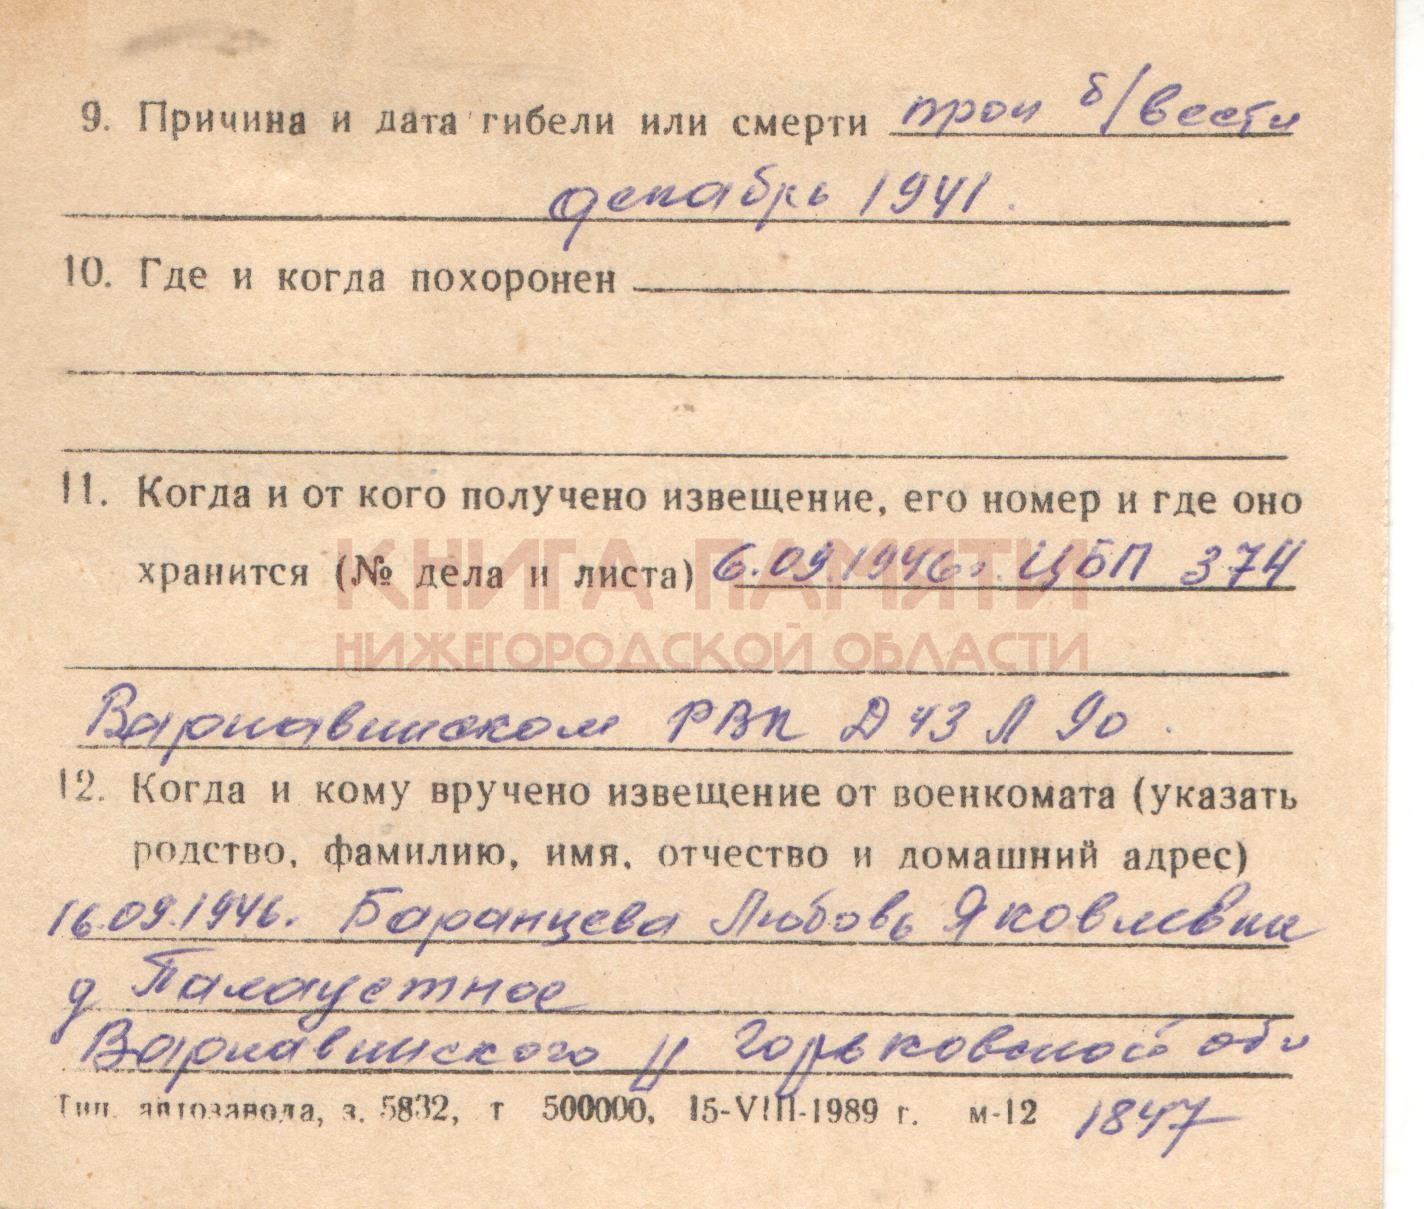 9. Причина и дата гибели или смерти проп б/вести
декабрь 1941.
10. Где и когда похоронен
11. Когда и от кого получено извещение, его номер и где оно
хранится (№ дела и листа) 6.09.1946г. ЦБП 374
КНИГА ПАМЯТИ
НИЖЕГОРОДСКОЙ ОБЛАСТИ
Варнавинском РВК Д 43 Л 90.
12. Когда и кому вручено извещение от военкомата (указать
родство, фамилию, имя, отчество и домашний адрес)
16.09.1946. Баранцева Любовь Яковлевна
д Палаустное
Варнавинского р Горьковской обл
Тип. автозавода, з. 5832, т 500000, 15-VIII-1989 г. м-12 1847